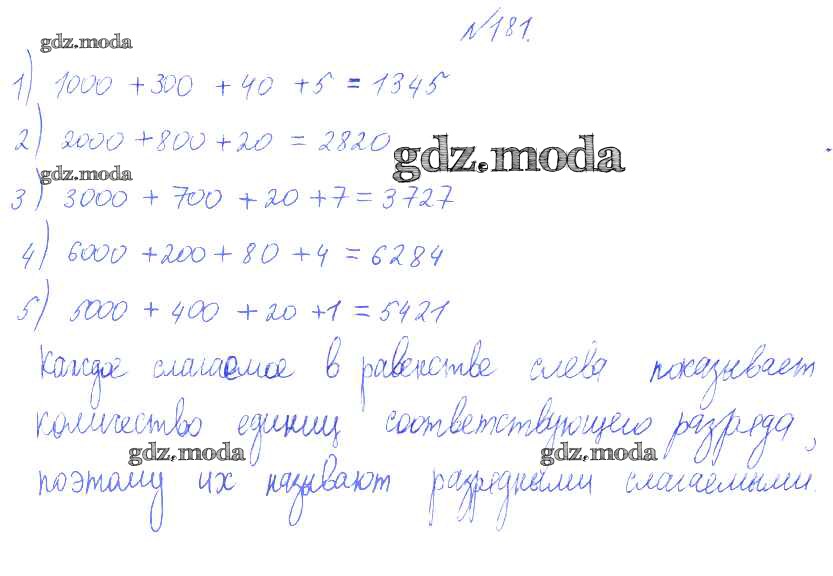 №181.
gdz.moda
1) 1000 + 300 + 40 + 5 = 1345
2) 2000 + 800 + 20 = 2820
gdz.moda
gdz.moda
3) 3000 + 700 + 20 + 7 = 3727
4) 6000 + 200 + 80 + 4 = 6284
5) 5000 + 400 + 20 + 1 = 5421
Каждое слагаемое в равенстве слева показывает
количество единиц соответствующего разряда,
gdz.moda gdz.moda
поэтому их называют разрядными слагаемыми.